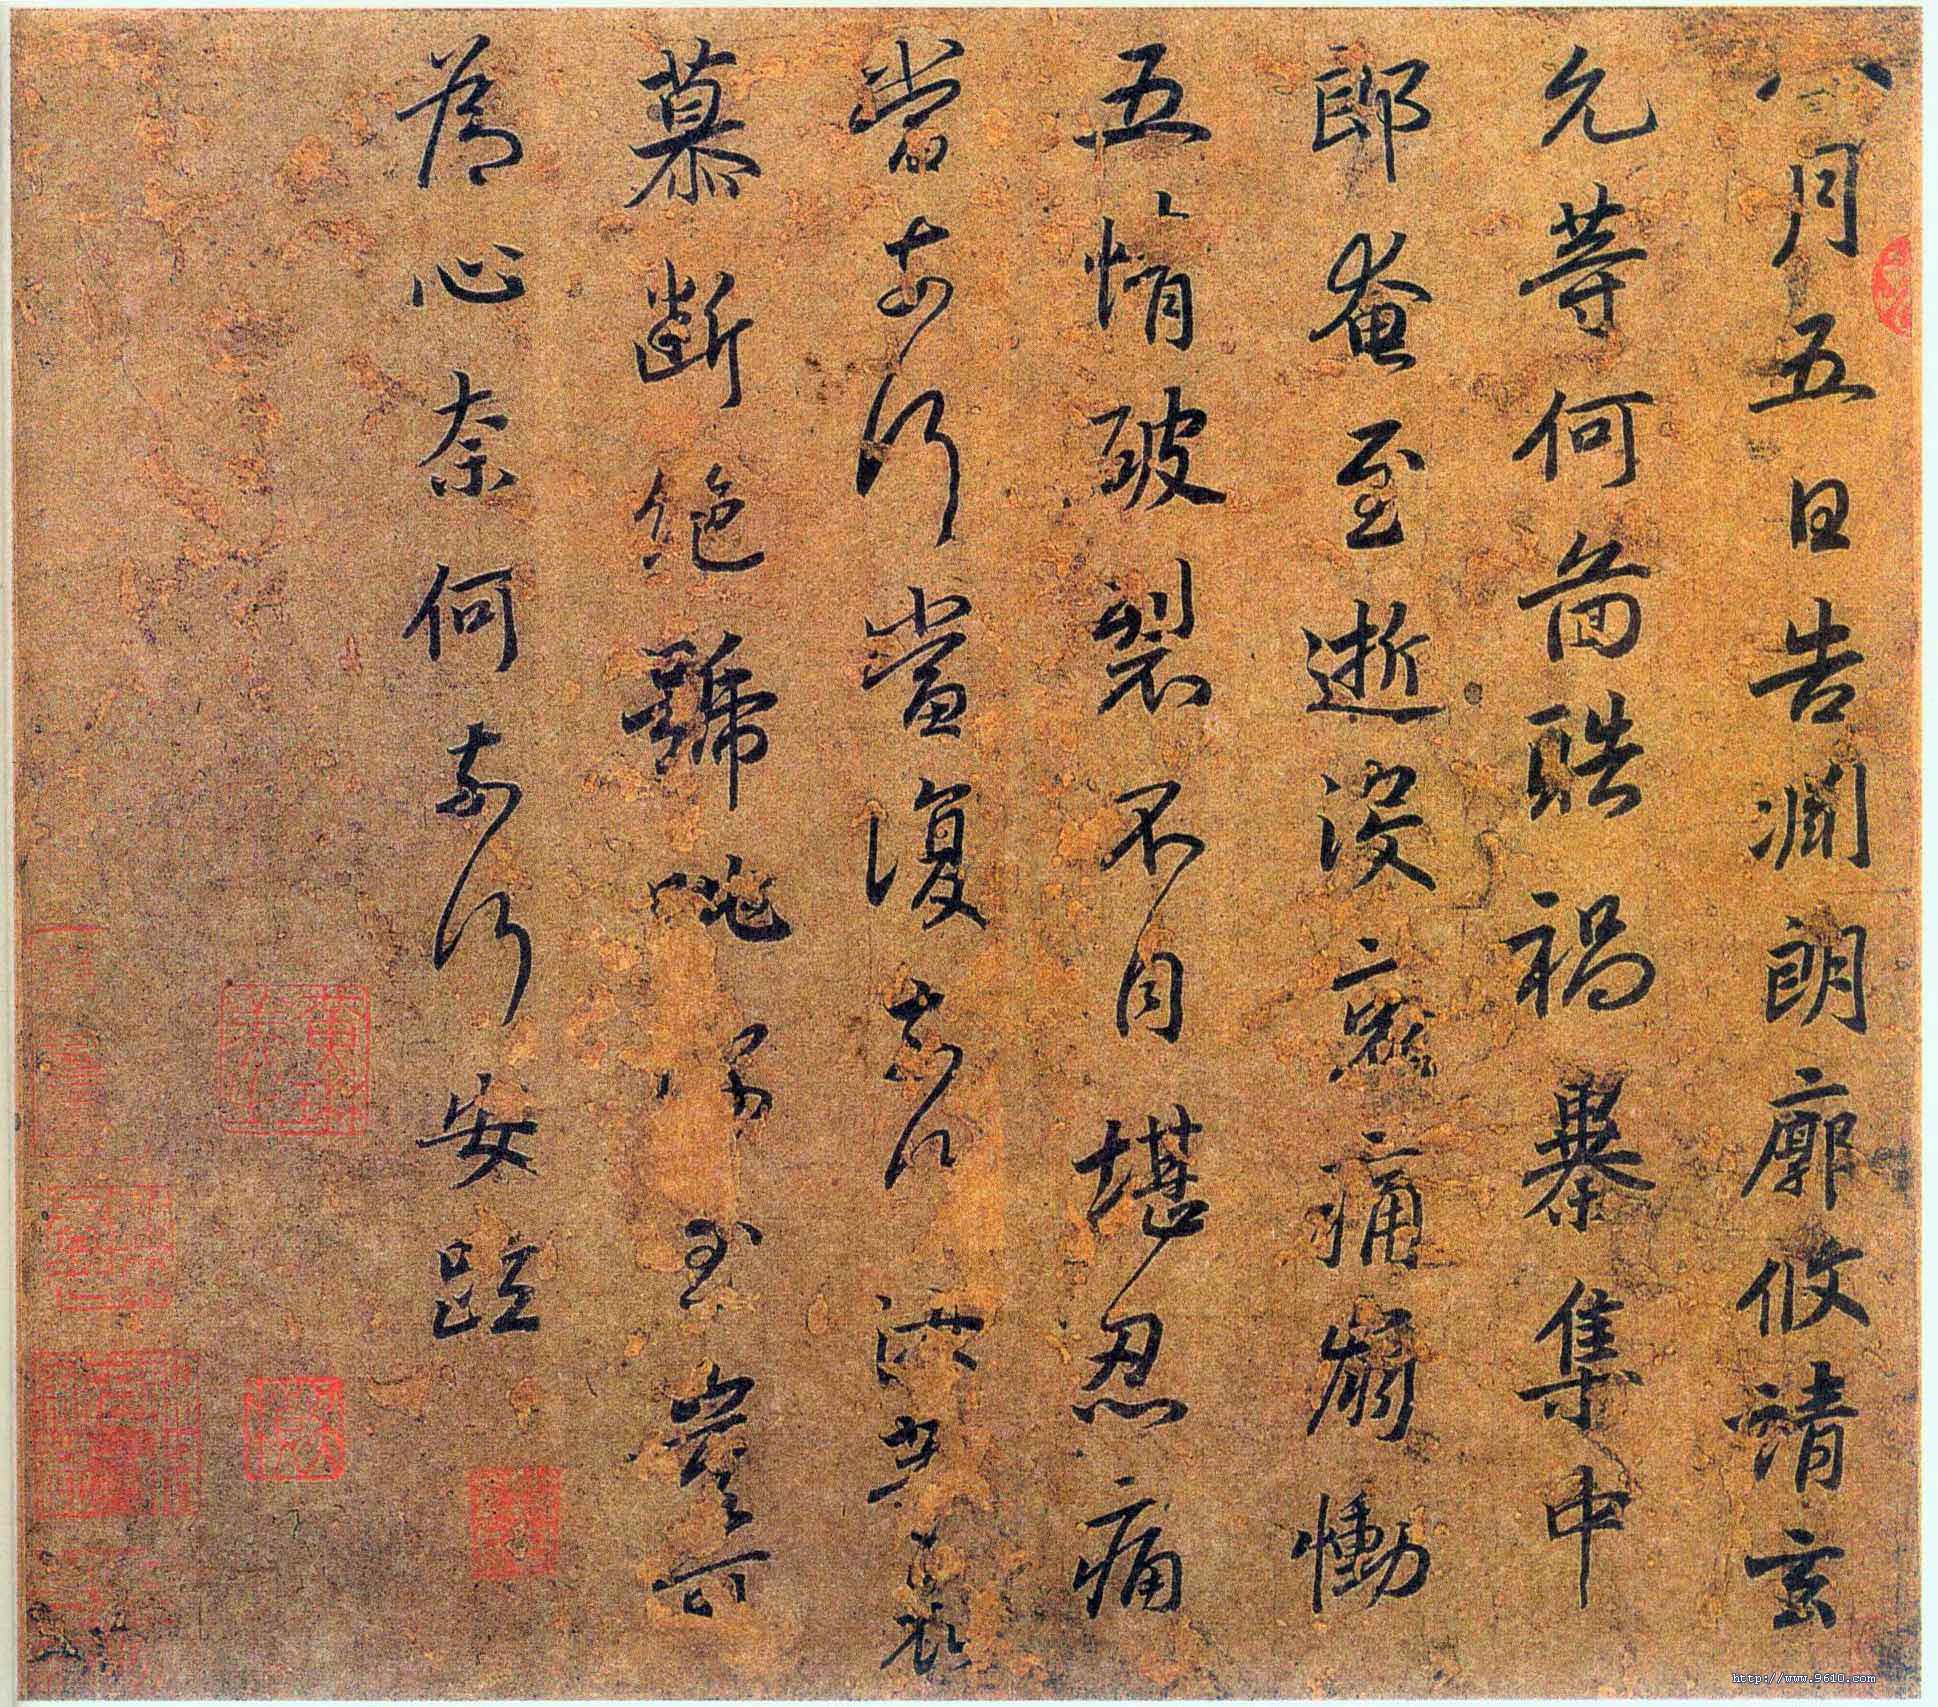 八月五日告淵朗廓攸靖玄
允等何圖酷禍暴集中
郎奄至逝没哀痛崩慟
五情破裂不自堪忍痛
當奈何當復奈何汝等哀
慕斷絕號咷深至豈可
為心奈何奈何安疏
http://www.9610.com